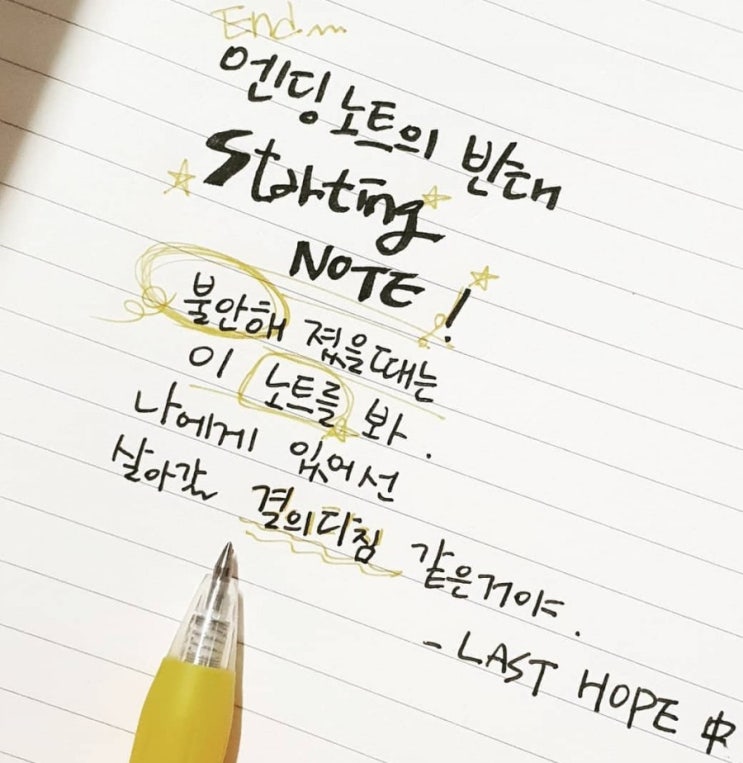 End...
엔딩노트의 반대
Starting
NOTE!
불안해 졌을때는
이 노트를 봐.
나에게 있어선
살아갈 결의다짐 같은거야.
- LAST HOPE